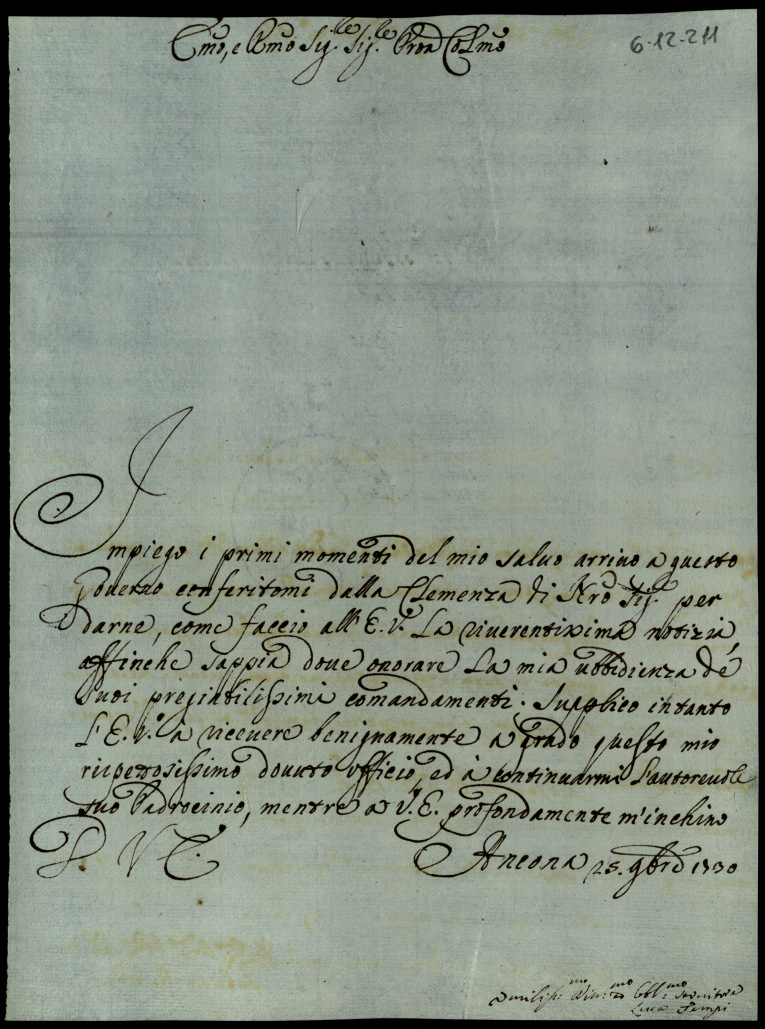 Emo, e Rmo Sig.re Sig.re Pron Colmo
6-12-211
Impiego i primi momenti del mio salvo arrivo a questo
Governo conferitomi dalla Clemenza di Nro Sig.re per
darne, come faccio all'E.V. La riverentissima notizia,
affinche sappia dove onorare La mia ubbidienza de
suoi pregiabilissimi comandamenti. Supplico intanto
L'E.V. à ricevere benignamente a grado questo mio
rispettosissimo dovuto ufficio, ed à continuarmi L'autorevole
suo Padrocinio, mentre a V.E. profondamente m'inchino
D. V. E. Ancona 25. 9bre 1730
Umiliss.mo Div.mo Obbl.mo Servitore
Luca Tempi